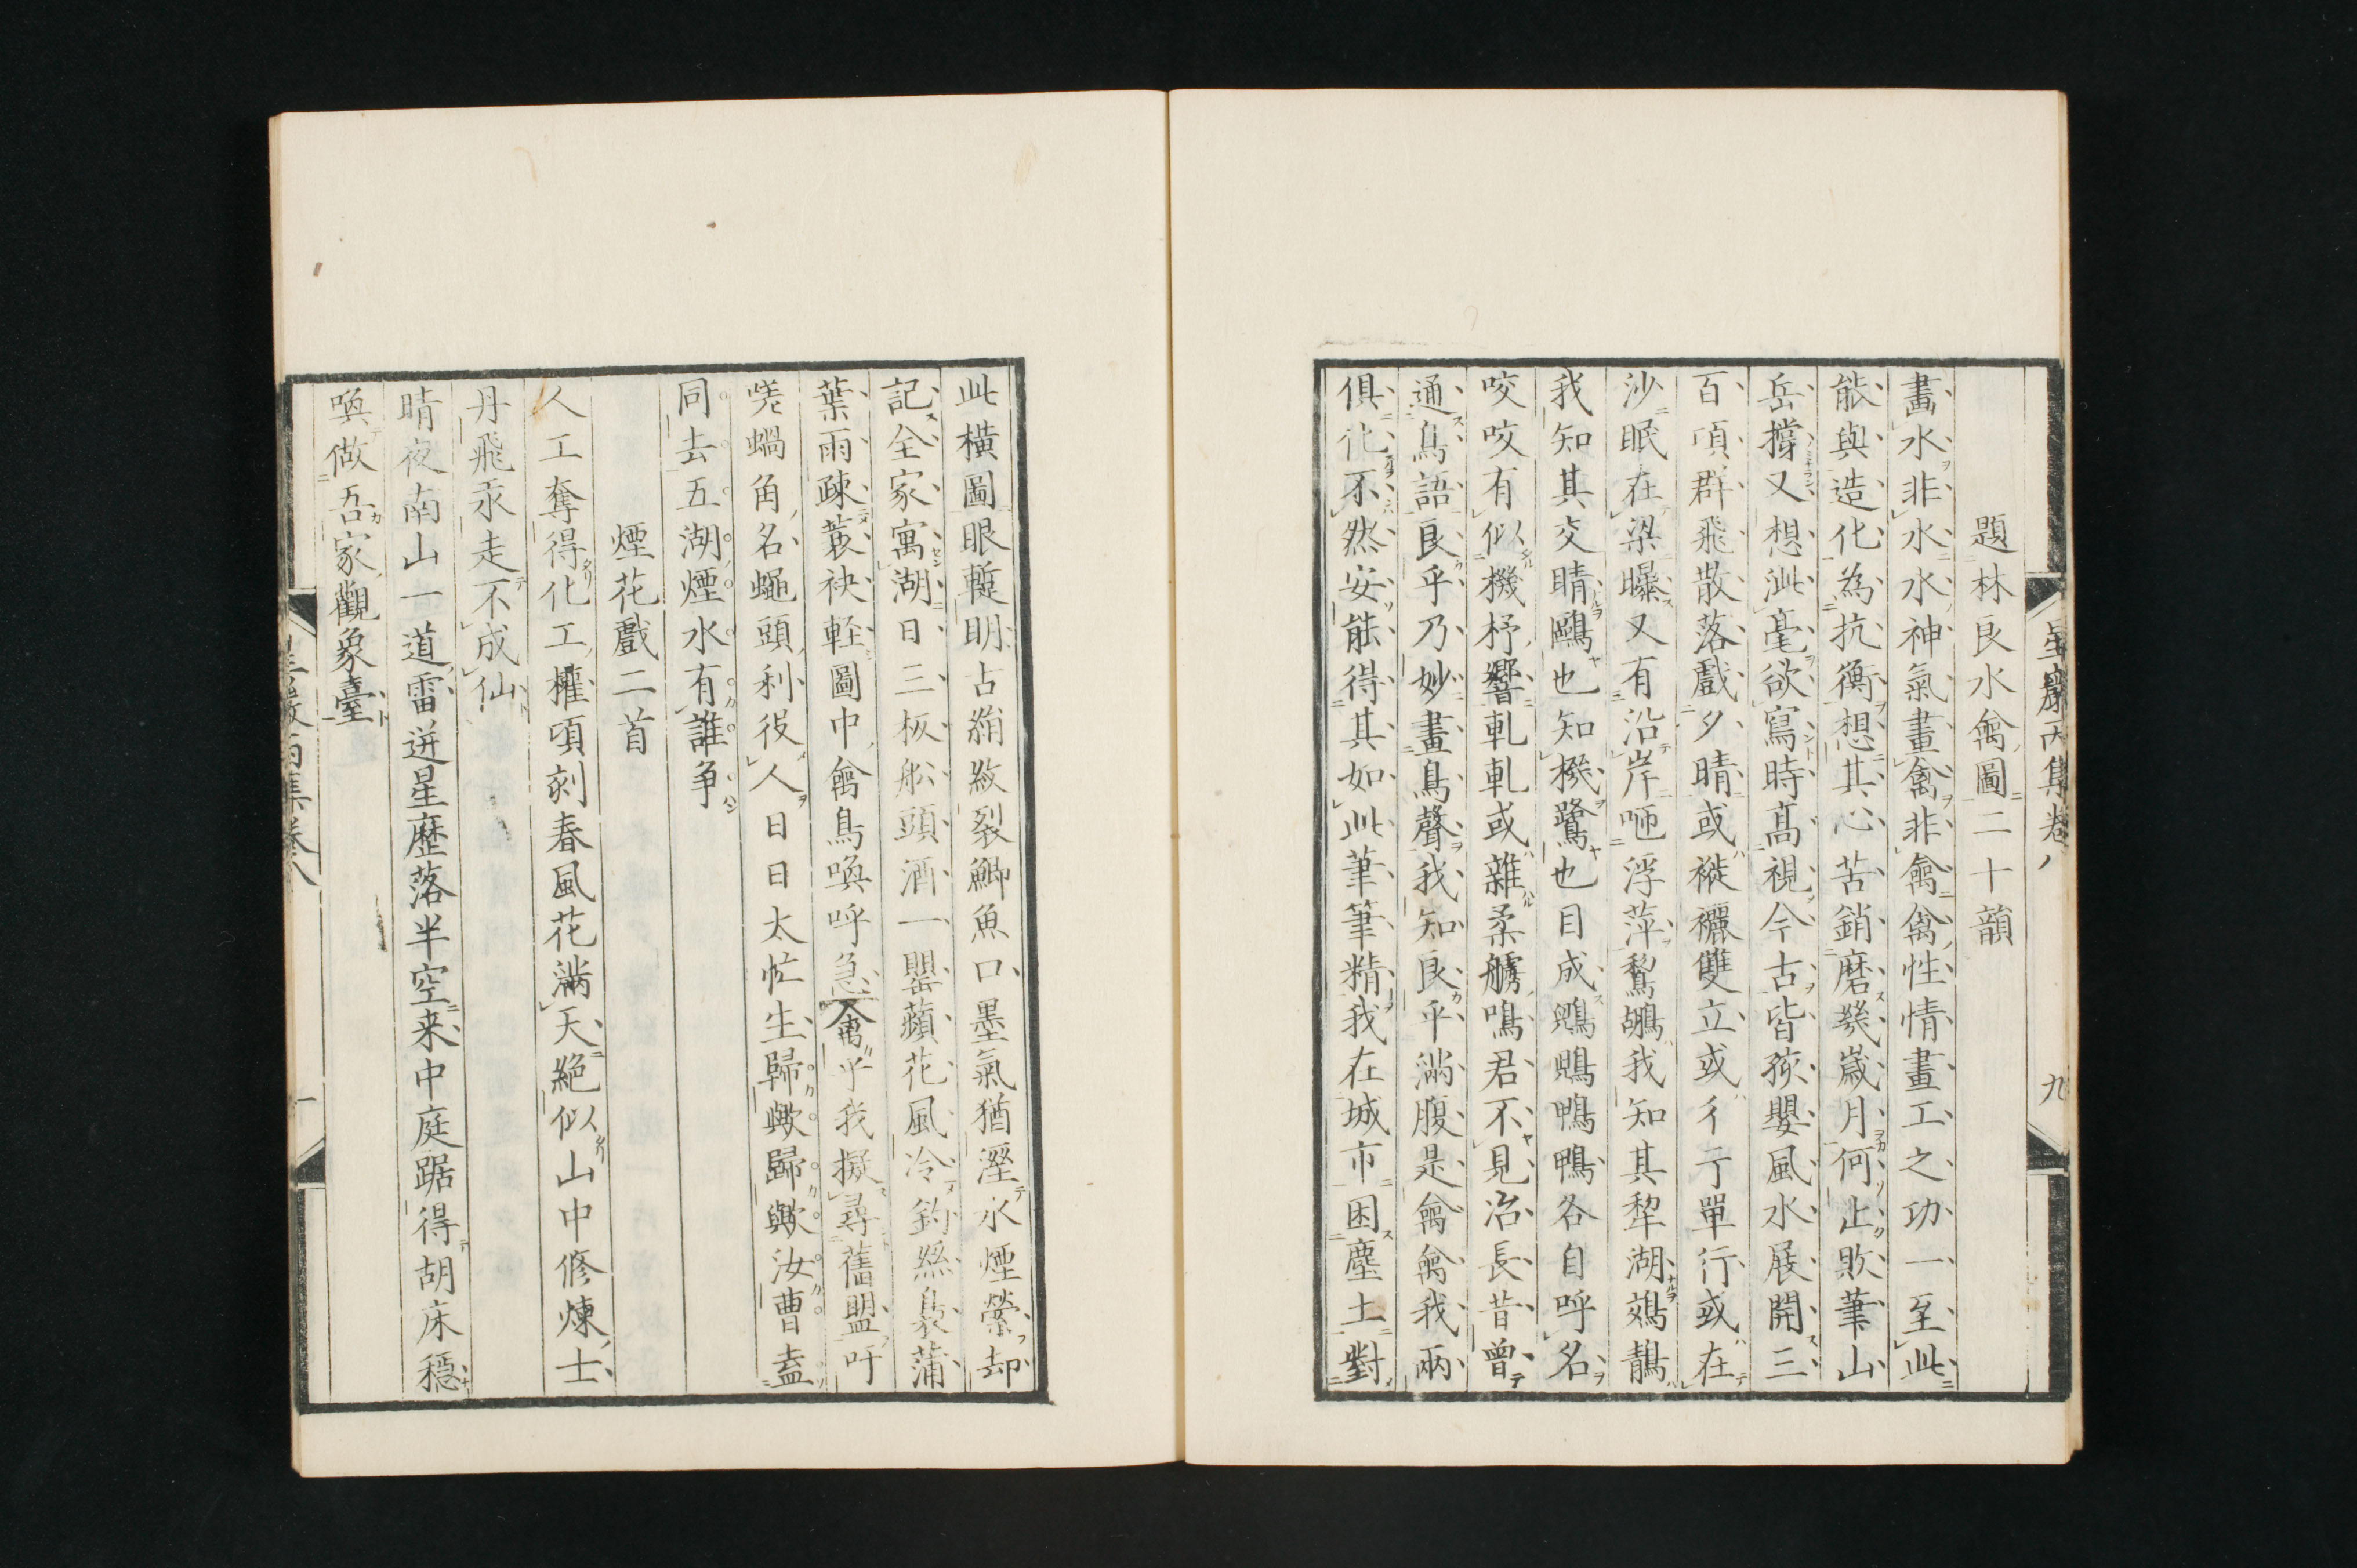 星巖丙集卷八 九
題林良水禽圖二十韻
畫水非水水神氣畫禽非禽禽性情畫工之功一至此
能與造化為抗衡想其心苦銷磨幾歲月何止敗筆山
岳撐又想泚毫欲寫時高視今古皆孩嬰風水展開三
百頃群飛散落戲夕晴或褷褵雙立或彳亍單行或在
沙眠在梁曝又有沿岸唼浮萍鵹鶘我知其犂湖鵁鶄
我知其交睛鷗也知機鷺也目成鶂鶂鴨鴨各自呼名
咬咬有似機杼響軋軋或雜柔艣鳴君不見冶長昔曾
通鳥語良乎乃妙畫鳥聲我知良乎滿腹是禽禽我兩
俱化不然安能得其如此筆筆精我在城市困塵土對
此橫圖眼蹔明占綃紋裂鯽魚口墨氣猶溼水煙縈却
記全家寓湖日三板舩頭酒一罌蘋花風冷釣絲裊蒲
葉雨疎蓑袂輕圖中禽鳥喚呼急禽乎我擬尋舊盟吁
嗟蝸角名蠅頭利役人日日太忙生歸歟歸歟汝曹盍
同去五湖煙水有誰爭
煙花戲二首
人工奪得化工權頃刻春風花滿天絕似山中修煉士
丹飛汞走不成仙
晴夜南山一道雷迸星歷落半空来中庭踞得胡床穩
喚做吾家觀象臺
星巖丙集卷八